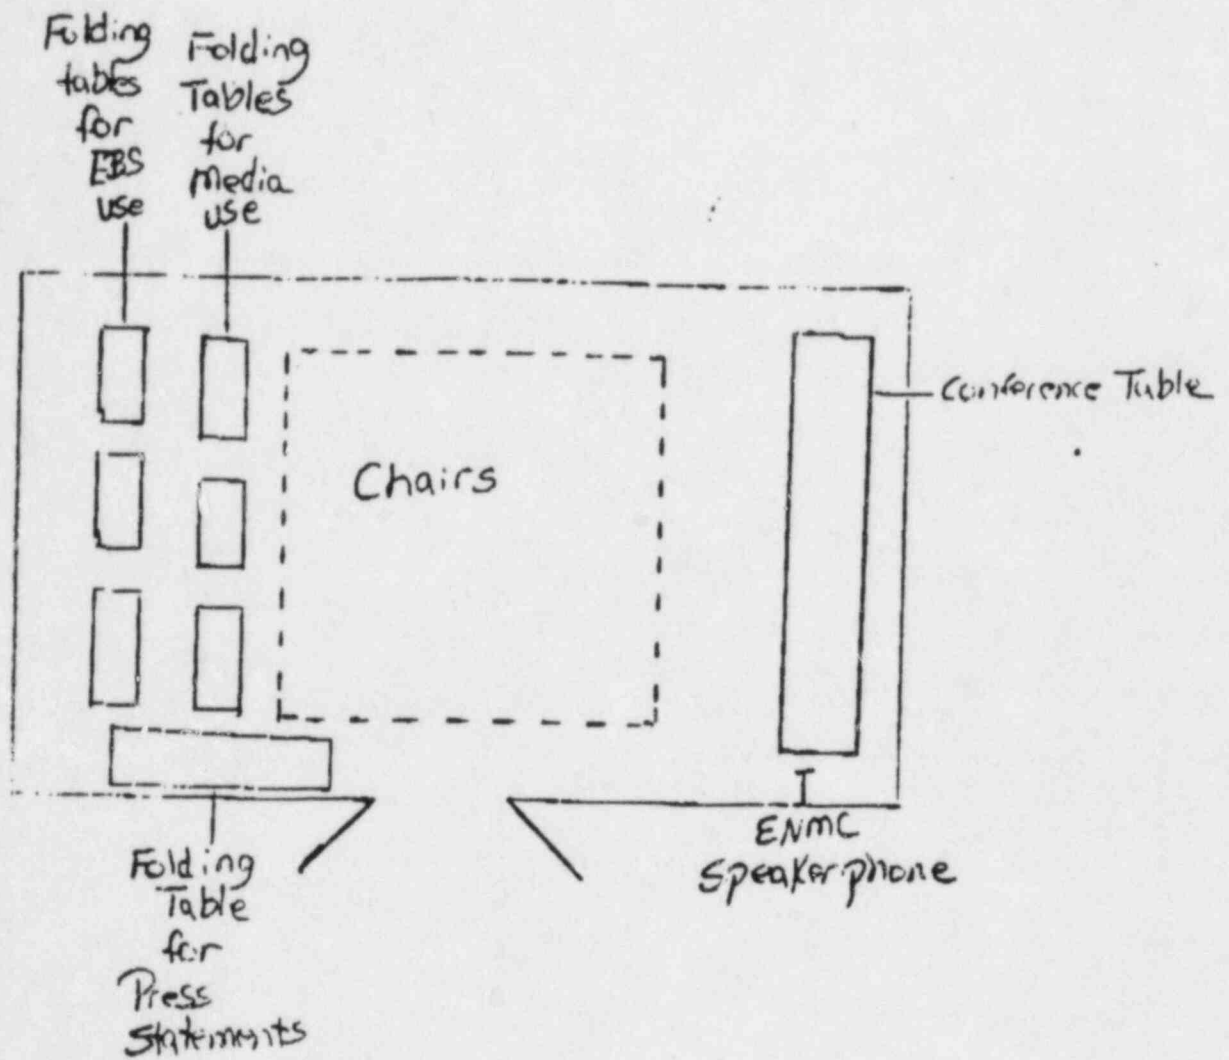 Folding
tables
for
EBS
use
Folding
Tables
for
Media
use
Chairs
Conference Table
ENMC
Speakerphone
Folding
Table
for
Press
Statements